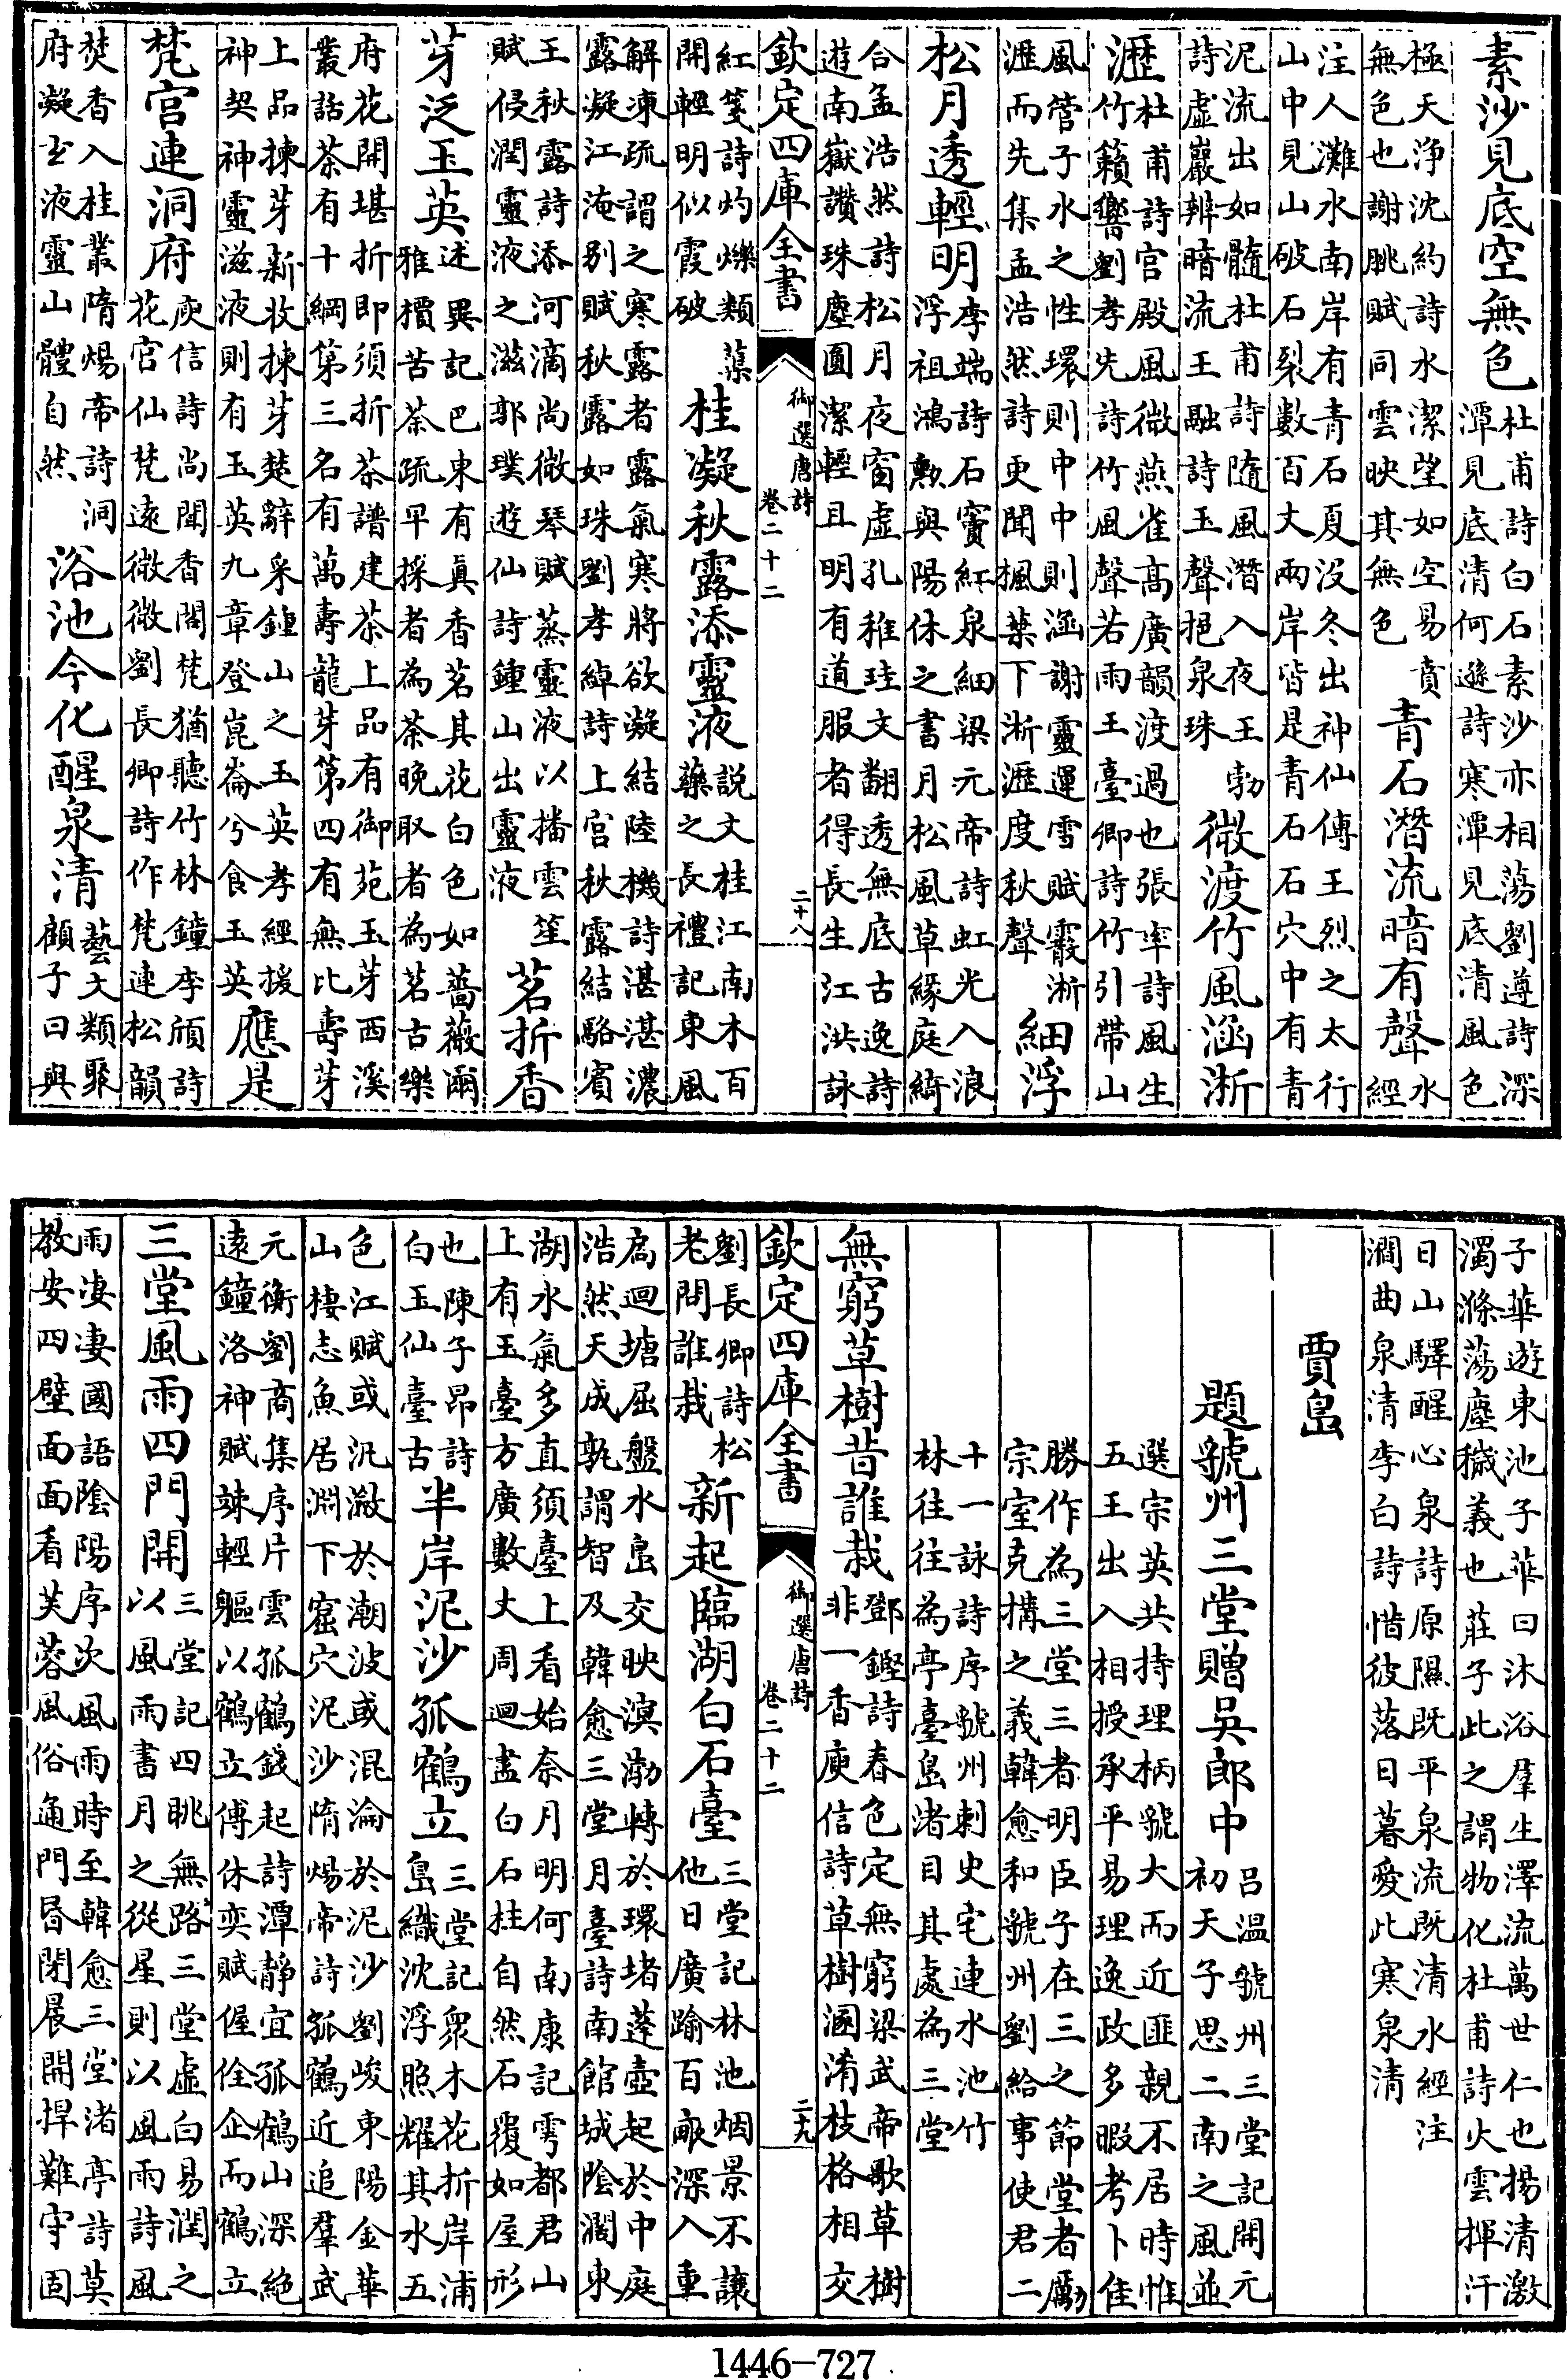 素沙見底空無色 杜甫詩白石素沙亦相蕩劉遵詩深
潭見底清何遜詩寒潭見底清風色
極天浄沈約詩水潔望如空易賁
無色也謝眺賦同雲映其無色
青石潛流暗有聲 水
經
注人灘水南岸有青石夏没冬出神仙傳王烈之太行
山中見山破石裂數百丈兩岸皆是青石石穴中有青
泥流出如髓杜甫詩隨風潛入夜王勃
詩虛巖辨暗流王融詩玉聲挹泉珠
微渡竹風涵淅
瀝 杜甫詩宫殿風微燕雀髙廣韻渡過也張率詩風生
竹籟響劉孝先詩竹風聲若雨王臺卿詩竹引帶山
風管子水之性環則中中則涵謝靈運雪賦霰淅
瀝而先集孟浩然詩更聞楓葉下淅瀝度秋聲
細浮
松月透輕明 李端詩石竇紅泉細梁元帝詩虹光入浪
浮祖鴻勲與陽休之書月松風草緣庭綺
合孟浩然詩松月夜窗虛孔稚珪文翻透無底古逸詩
遊南嶽讚珠塵圓潔輕且明有道服者得長生江洪詠
欽定四庫全書 御選唐詩 卷二十二 二十八
紅箋詩灼爍類蕖
開輕明似霞破
桂凝秋露添靈液 説文桂江南木百
藥之長禮記東風
解凍疏謂之寒露者露氣寒將欲凝結陸機詩湛湛濃
露凝江淹别賦秋露如珠劉孝綽詩上宫秋露結駱賓
王秋露詩添河滴尚微琴賦蒸靈液以播雲笙
賦侵潤靈液之滋郭璞遊仙詩鍾山出靈液
茗折香
芽泛玉英 述異記巴東有真香茗其花白色如薔薇爾
雅檟苦荼疏早採者為荼晚取者為茗古樂
府花開堪折即須折茶譜建茶上品有御苑玉芽西溪
叢話茶有十綱第三名有萬壽龍芽第四有無比壽芽
上品揀芽新收揀芽楚辭采鍾山之玉英孝經援
神契神靈滋液則有玉英九章登崑崙兮食玉英
應是
梵宫連洞府 庾信詩尚聞香閣梵猶聽竹林鐘李頎詩
花宫仙梵遠微微劉長卿詩作梵連松韻
焚香入桂叢隋煬帝詩洞
府凝玄液靈山體自然
浴池今化醒泉清 藝文類聚
顧子曰與
子華遊東池子華曰沐浴羣生澤流萬世仁也揚清激
濁滌蕩塵穢義也莊子此之謂物化杜甫詩火雲揮汗
日山驛醒心泉詩原隰既平泉流既清水經注
澗曲泉清李白詩惜彼落日暮愛此寒泉清
賈島
題虢州三堂贈吳郎中 吕温虢州三堂記開元
初天子思二南之風並
選宗英共持理柄虢大而近匪親不居時惟
五王出入相授承平易理逸政多暇考卜佳
勝作為三堂三者明臣子在三之節堂者勵
宗室克構之義韓愈和虢州劉給事使君二
十一詠詩序虢州刺史宅連水池竹
林往往為亭臺島渚目其處為三堂
無窮草樹昔誰栽 鄧鏗詩春色定無窮梁武帝歌草樹
非一香庾信詩草樹溷淆枝格相交
欽定四庫全書 御選唐詩 卷二十二 二十九
劉長卿詩松
老問誰栽
新起臨湖白石臺 三堂記林池烟景不讓
他日廣踰百畝深入重
扃迴塘屈盤水島交映溟渤轉於環堵蓬壺起於中庭
浩然天成孰謂智及韓愈三堂月臺詩南館城陰濶東
湖水氣多直須臺上看始奈月明何南康記雩都君山
上有玉臺方廣數丈周迴盡白石柱自然石覆如屋形
也陳子昂詩
白玉仙臺古
半岸泥沙孤鶴立 三堂記衆木花折岸浦
島織沈浮照耀其水五
色江賦或汎瀲於潮波或混淪於泥沙劉峻東陽金華
山棲志魚居淵下窟穴泥沙隋煬帝詩孤鶴近追羣武
元衡劉商集序片雲孤鶴錢起詩潭靜宜孤鶴山深絶
遠鐘洛神賦竦輕軀以鶴立傅休奕賦偓佺企而鶴立
三堂風雨四門開 三堂記四眺無路三堂虛白易潤之
以風雨書月之從星則以風雨詩風
雨淒淒國語陰陽序次風雨時至韓愈三堂渚亭詩莫
教安四壁面面看芙蓉風俗通門昬閉晨開捍難守固
1446-727